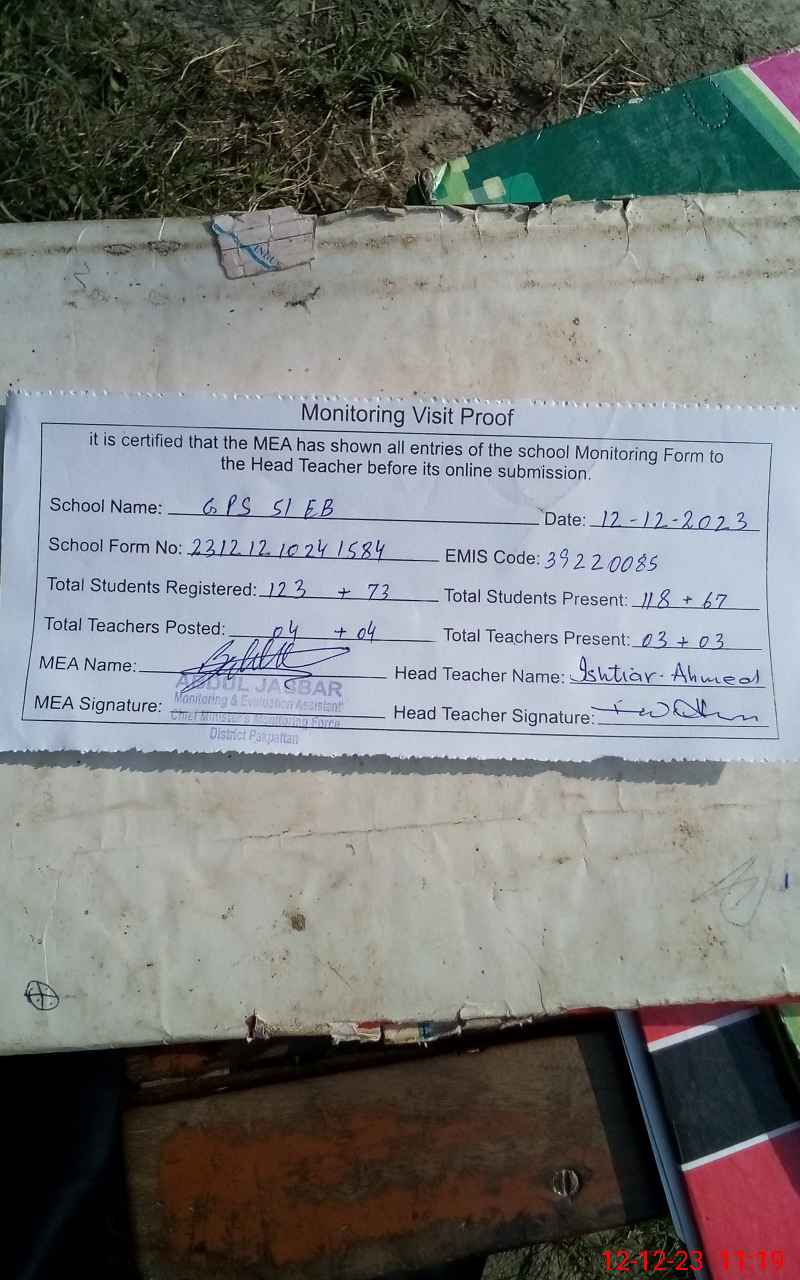 Monitoring Visit Proof
it is certified that the MEA has shown all entries of the school Monitoring Form to
the Head Teacher before its online submission.
School Name: GPS 51 EB Date: 12-12-2023
School Form No: 23121210241584 EMIS Code: 39220085
Total Students Registered: 123 + 73 Total Students Present: 118 + 67
Total Teachers Posted: 04 + 04 Total Teachers Present: 03 + 03
MEA Name: Head Teacher Name: Ishtiar Ahmed
ABDUL JABBAR
Monitoring & Evaluation Assistant
MEA Signature: Head Teacher Signature:
Chief Minister's Monitoring Force
District Pakpattan
12-12-23 11:19